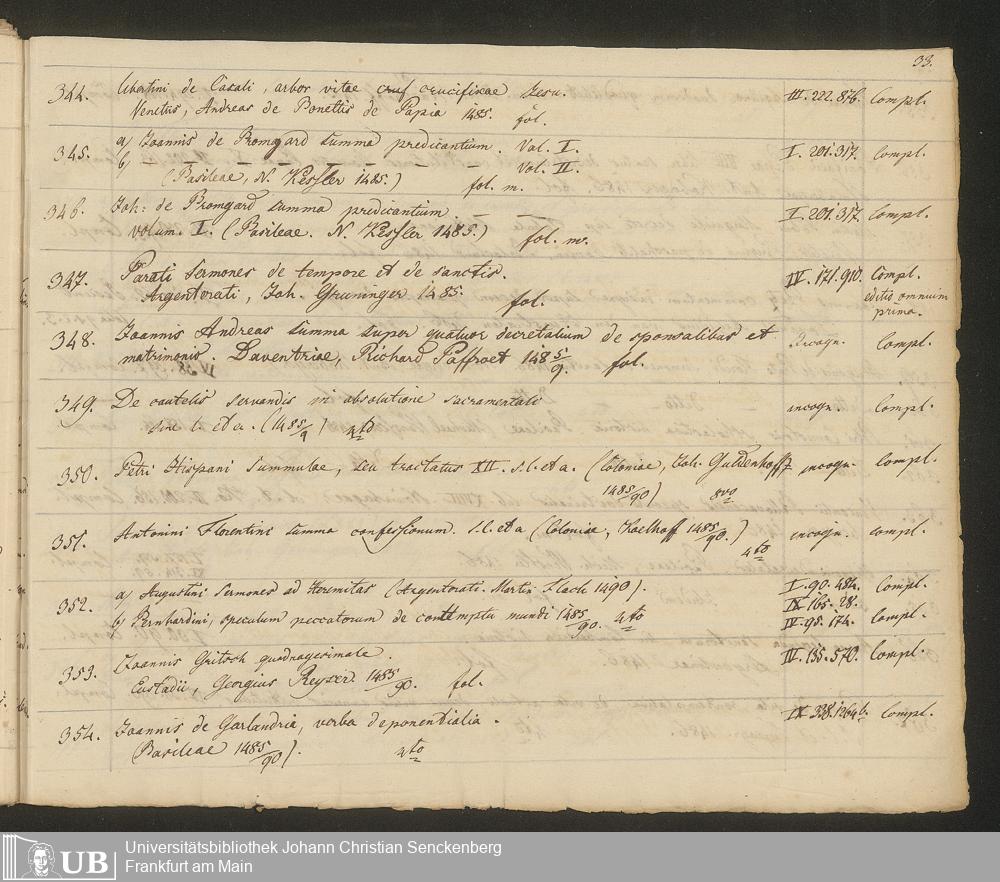 33.
344. Ubertini de Casali, arbor vitae cruf crucifixae Jesu. III. 222. 876. Compl.
Venetus, Andreas de Bonettis de Papia 1485. fol.
345. a) Joannis de Bromyard summa predicantium. Vol. I. I. 201. 317. Compl.
b) — — — — — — Vol. II.
(Basileae, N. Kessler 1485.) fol. m.
346. Joh: de Bromyard summa predicantium. — — I. 201. 317. Compl.
volum. I. (Basileae. N. Kessler 1485.) fol. m.
347. Parati Sermones de tempore et de sanctis. IV. 171. 910. Compl.
Argentorati, Joh. Gruninger 1485. fol. editio omnium
prima.
348. Joannis Andreas summa super quatuor decretalium de sponsalibus et incogn. Compl.
matrimonis. Daventriae, Richard Paffroet 1485/9. fol.
349. De cautelis servandis in absolutione sacramentali incogn. Compl.
sine l. et a. (1485/9) 4to
350. Petri Hispani Summulae, seu tractatus XII. s. l. et a. (Coloniae, Joh. Guldenhoff incogn. Compl.
1485/90) 8vo
351. Antonini Florentini summa confessionum. s. l. et a (Coloniae, Koelhoff 1485/90.) incogn. Compl.
4to
352. a) Augustini Sermones ad Heremitas (Argentorati. Martin Flach 1490). I. 90. 484. Compl.
IX 165. 28.
b) Bernhardini, speculum peccatorum de contemptu mundi 1485/90. 4to IV. 95. 174. Compl.
353. Joannis Gritsch quadragesimale. IV. 135. 570. Compl.
Eustadii, Georgius Reyser 1485/90. fol.
354. Joannis de Garlandria, verba deponentialia. IX 338. 1264b. Compl.
(Basileae 1485/90). 4to
UB Universitätsbibliothek Johann Christian Senckenberg
Frankfurt am Main